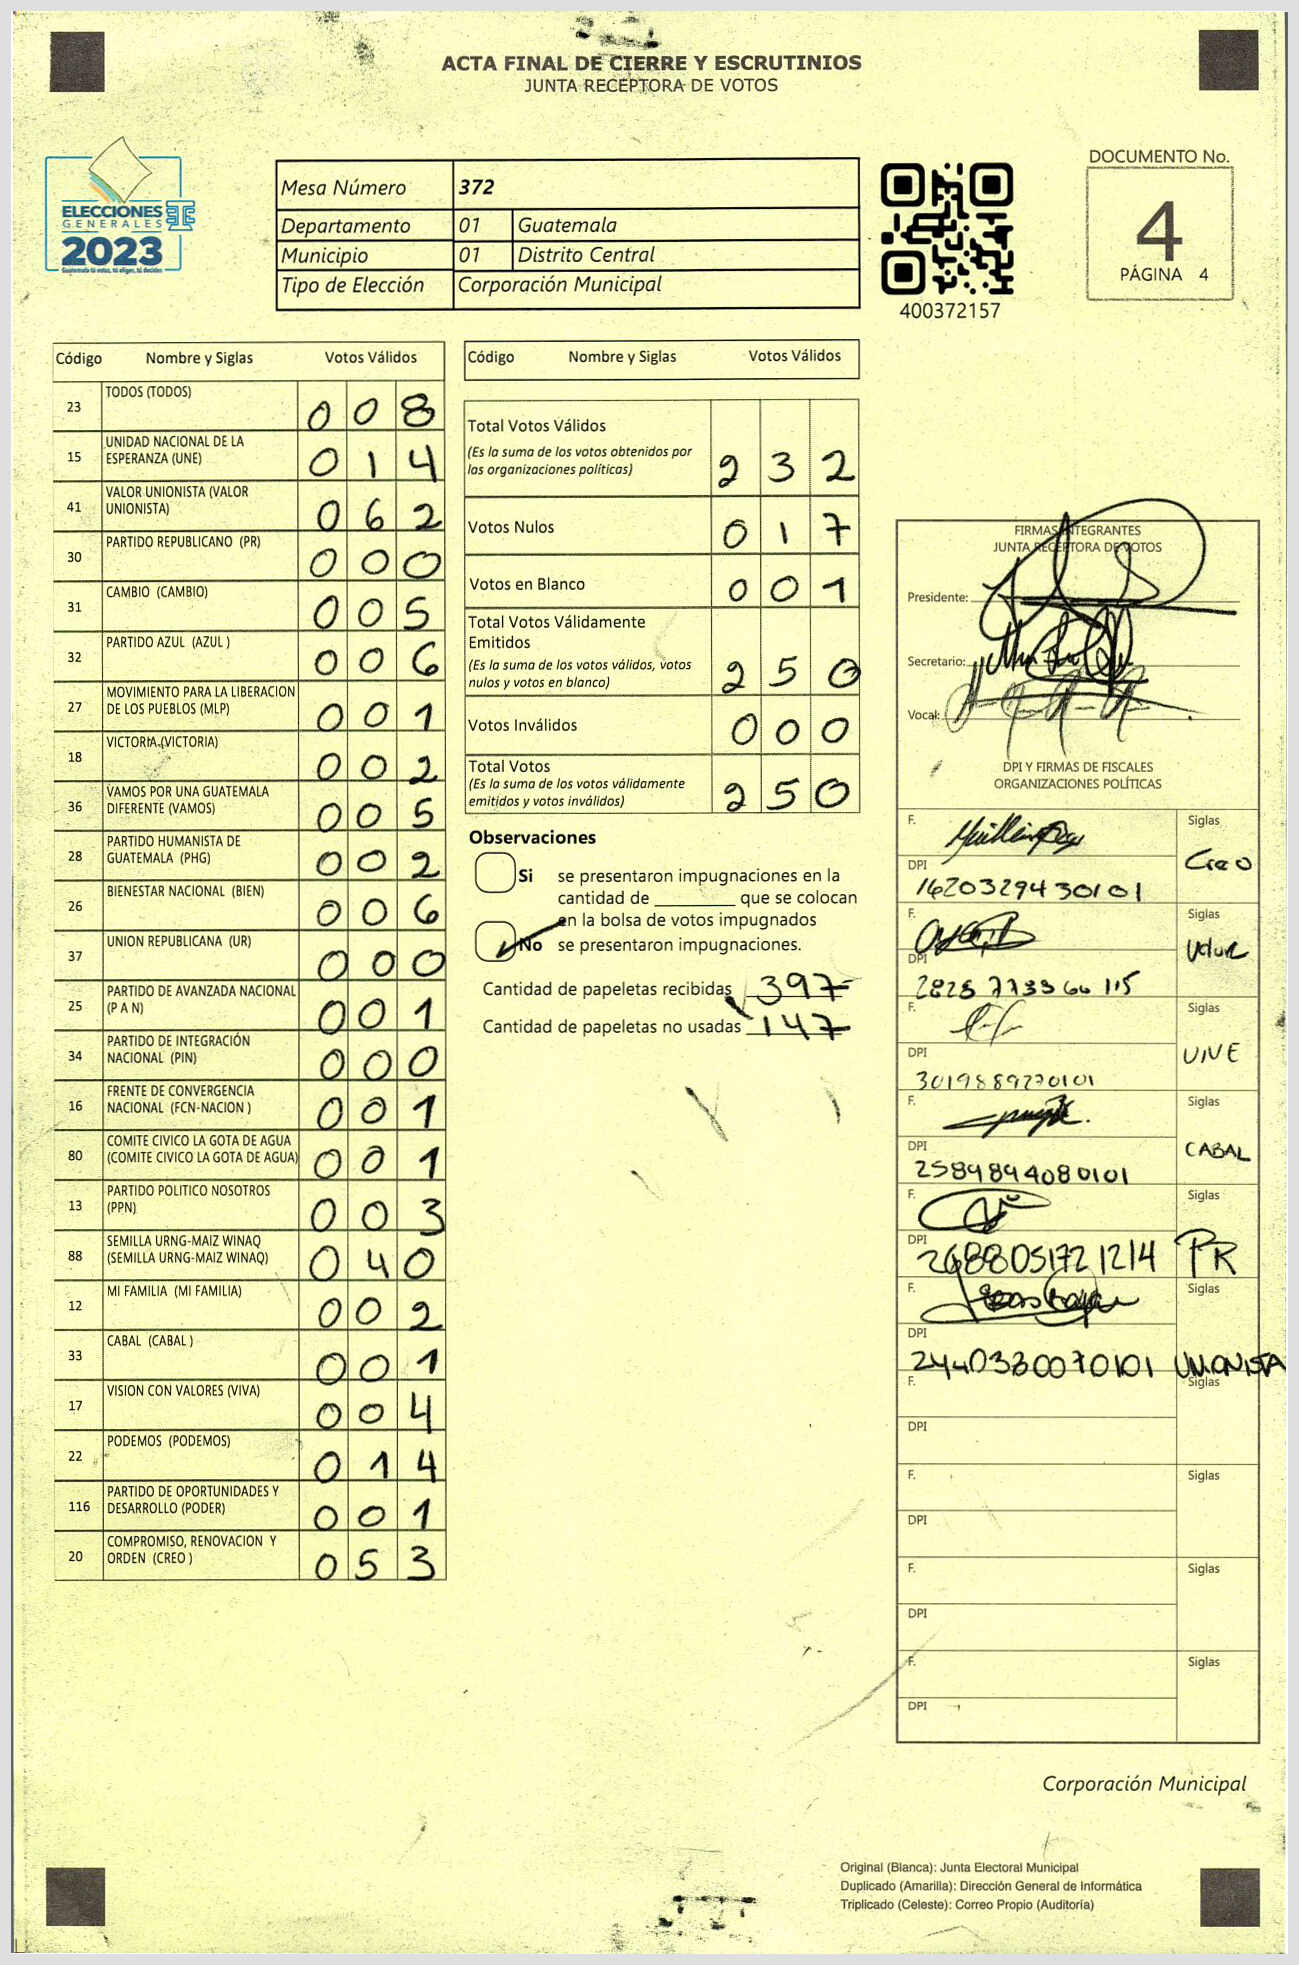 ACTA FINAL DE CIERRE Y ESCRUTINIOS
JUNTA RECEPTORA DE VOTOS
ELECCIONES
GENERALES
2023
Guatemala tú votas, tú eliges, tú decides
Mesa Número 372
Departamento 01 Guatemala
Municipio 01 Distrito Central
Tipo de Elección Corporación Municipal
400372157
DOCUMENTO No.
4
PÁGINA 4
Código Nombre y Siglas Votos Válidos
23 TODOS (TODOS) 0 0 8
15 UNIDAD NACIONAL DE LA ESPERANZA (UNE) 0 1 4
41 VALOR UNIONISTA (VALOR UNIONISTA) 0 6 2
30 PARTIDO REPUBLICANO (PR) 0 0 0
31 CAMBIO (CAMBIO) 0 0 5
32 PARTIDO AZUL (AZUL ) 0 0 6
27 MOVIMIENTO PARA LA LIBERACION DE LOS PUEBLOS (MLP) 0 0 1
18 VICTORIA (VICTORIA) 0 0 2
36 VAMOS POR UNA GUATEMALA DIFERENTE (VAMOS) 0 0 5
28 PARTIDO HUMANISTA DE GUATEMALA (PHG) 0 0 2
26 BIENESTAR NACIONAL (BIEN) 0 0 6
37 UNION REPUBLICANA (UR) 0 0 0
25 PARTIDO DE AVANZADA NACIONAL (P A N) 0 0 1
34 PARTIDO DE INTEGRACIÓN NACIONAL (PIN) 0 0 0
16 FRENTE DE CONVERGENCIA NACIONAL (FCN-NACION ) 0 0 1
80 COMITE CIVICO LA GOTA DE AGUA (COMITE CIVICO LA GOTA DE AGUA) 0 0 1
13 PARTIDO POLITICO NOSOTROS (PPN) 0 0 3
88 SEMILLA URNG-MAIZ WINAQ (SEMILLA URNG-MAIZ WINAQ) 0 4 0
12 MI FAMILIA (MI FAMILIA) 0 0 2
33 CABAL (CABAL ) 0 0 1
17 VISION CON VALORES (VIVA) 0 0 4
22 PODEMOS (PODEMOS) 0 1 4
116 PARTIDO DE OPORTUNIDADES Y DESARROLLO (PODER) 0 0 1
20 COMPROMISO, RENOVACION Y ORDEN (CREO ) 0 5 3
Código Nombre y Siglas Votos Válidos
Total Votos Válidos 2 3 2
(Es la suma de los votos obtenidos por
las organizaciones políticas)
Votos Nulos 0 1 7
Votos en Blanco 0 0 1
Total Votos Válidamente
Emitidos 2 5 0
(Es la suma de los votos válidos, votos
nulos y votos en blanco)
Votos Inválidos 0 0 0
Total Votos 2 5 0
(Es la suma de los votos válidamente
emitidos y votos inválidos)
Observaciones
Si se presentaron impugnaciones en la
cantidad de ________ que se colocan
en la bolsa de votos impugnados
No se presentaron impugnaciones.
Cantidad de papeletas recibidas 397
Cantidad de papeletas no usadas 147
FIRMAS INTEGRANTES
JUNTA RECEPTORA DE VOTOS
Presidente:
Secretario:
Vocal:
DPI Y FIRMAS DE FISCALES
ORGANIZACIONES POLÍTICAS
F. Siglas
CREO
DPI
1620329430101
F. Siglas
Valor
DPI
F. Siglas
VIVE
DPI
3019889270101
F. Siglas
CABAL
DPI
2589894080101
F. Siglas
PR
DPI
2688051721214
F. Siglas
UNIONISTA
DPI
2440330070101
F. Siglas
DPI
F. Siglas
DPI
F. Siglas
DPI
F. Siglas
DPI
Corporación Municipal
Original (Blanca): Junta Electoral Municipal
Duplicado (Amarilla): Dirección General de Informática
Triplicado (Celeste): Correo Propio (Auditoría)